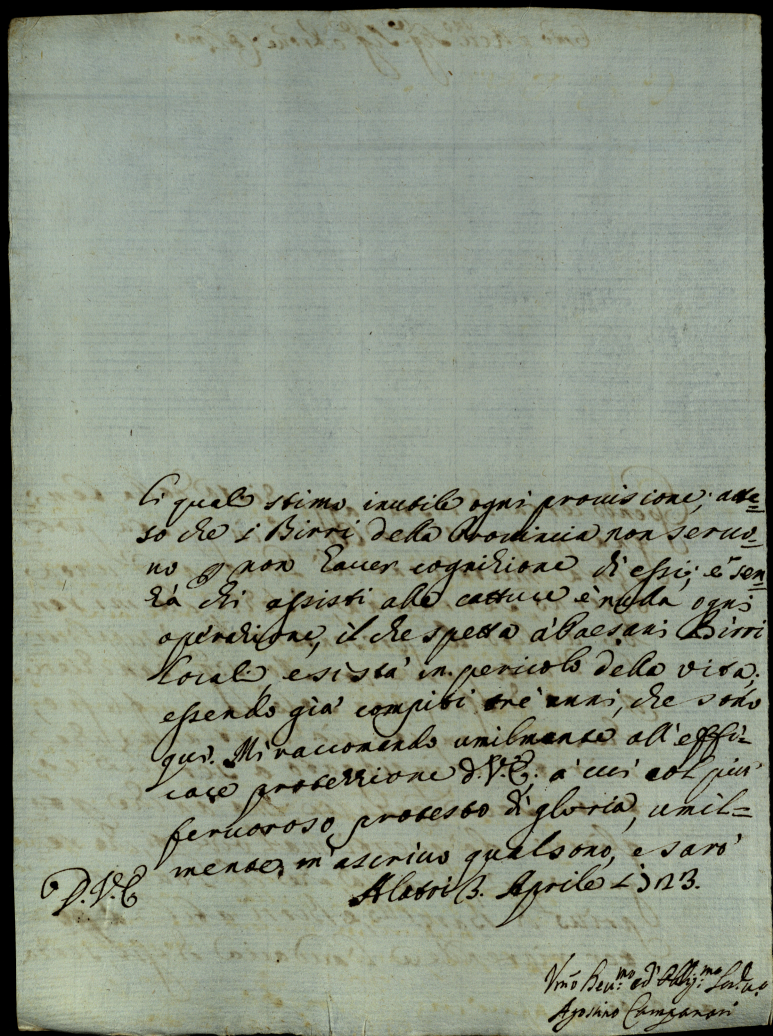 li quali stimo inutile ogni provisione; atte=
so che i Birri della Provincia non servo=
no p non haver cognizione di essi; e' sen=
za chi assisti alle catture è nulla ogni
operazione, il che spetta a' Paesani Birri
locali, e si stà in pericolo della vita,
essendo già compiti trè anni, che sono
qui. Mi raccomando umilmente all'effi=
cace protezzione d.V.E. a' cui col più
fervoroso protesto di gloria, umil=
mente m'ascrivo qual sono, e sarò
D.V.E
Alatri 3. Aprile 1723.
Vmo Devmo ed Obligmo
Agostino Campanari